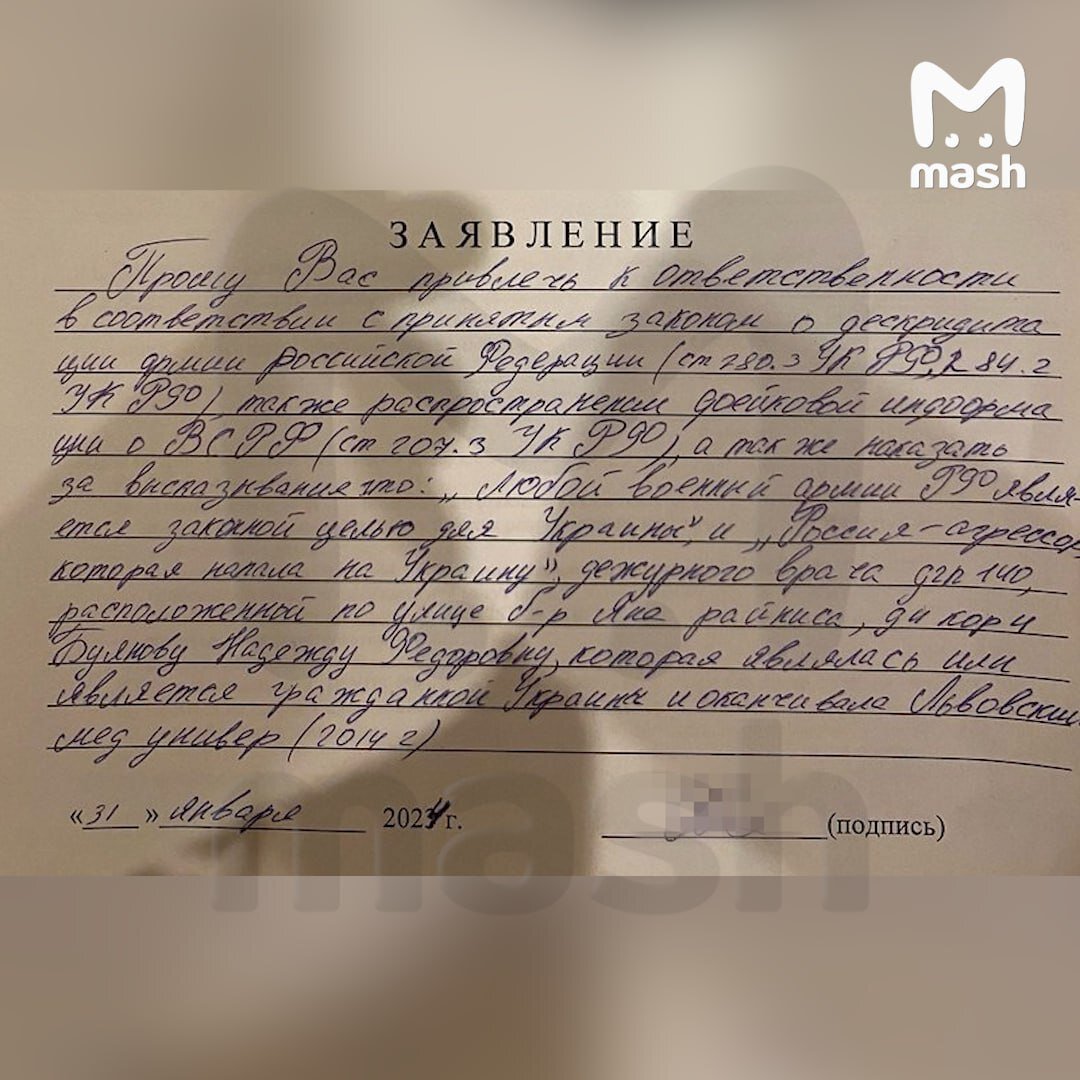 mash
ЗАЯВЛЕНИЕ
Прошу Вас привлечь к ответственности
в соответствии с принятым законом о дескридита
ции армии Российской Федерации (ст 280.3 УК РФ, 284.2
УК РФ), также распространении фейковой информа
ции о ВСРФ (ст 207.3 УК РФ), а так же наказать
за высказывание что: „Любой военный армии РФ явля-
ется законной целью для Украины", и „Россия-агрессор
которая напала на Украину", дежурного врача дгп 140,
расположенной по улице б-р Яна райниса, д4 кор4
Буянову Надежду Федоровну, которая являлась или
является гражданкой Украины и оканчивала Львовский
мед универ (2014 г)
«31» января 2024 г. (подпись)
mash